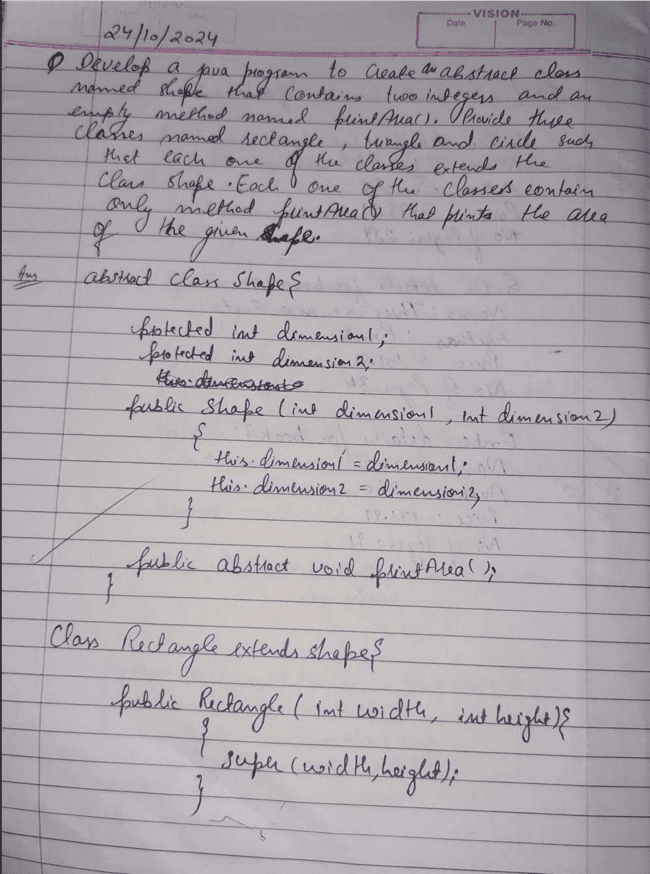 VISION
Date Page No.
24/10/2024
Q Develop a java program to create an abstract class
named shape that contains two integers and an
empty method named printArea(). Provide three
classes named rectangle, triangle and circle such
that each one of the classes extends the
Class shape. Each one of the classes contain
only method printArea() that prints the area
of the given shape.
Ans abstract class Shape{
protected int dimension1;
protected int dimension2;
public Shape (int dimension1, int dimension2)
{
this.dimension1 = dimension1;
this.dimension2 = dimension2;
}
public abstract void printArea();
}
Class Rectangle extends shape{
public Rectangle (int width, int height){
{
super (width, height);
}